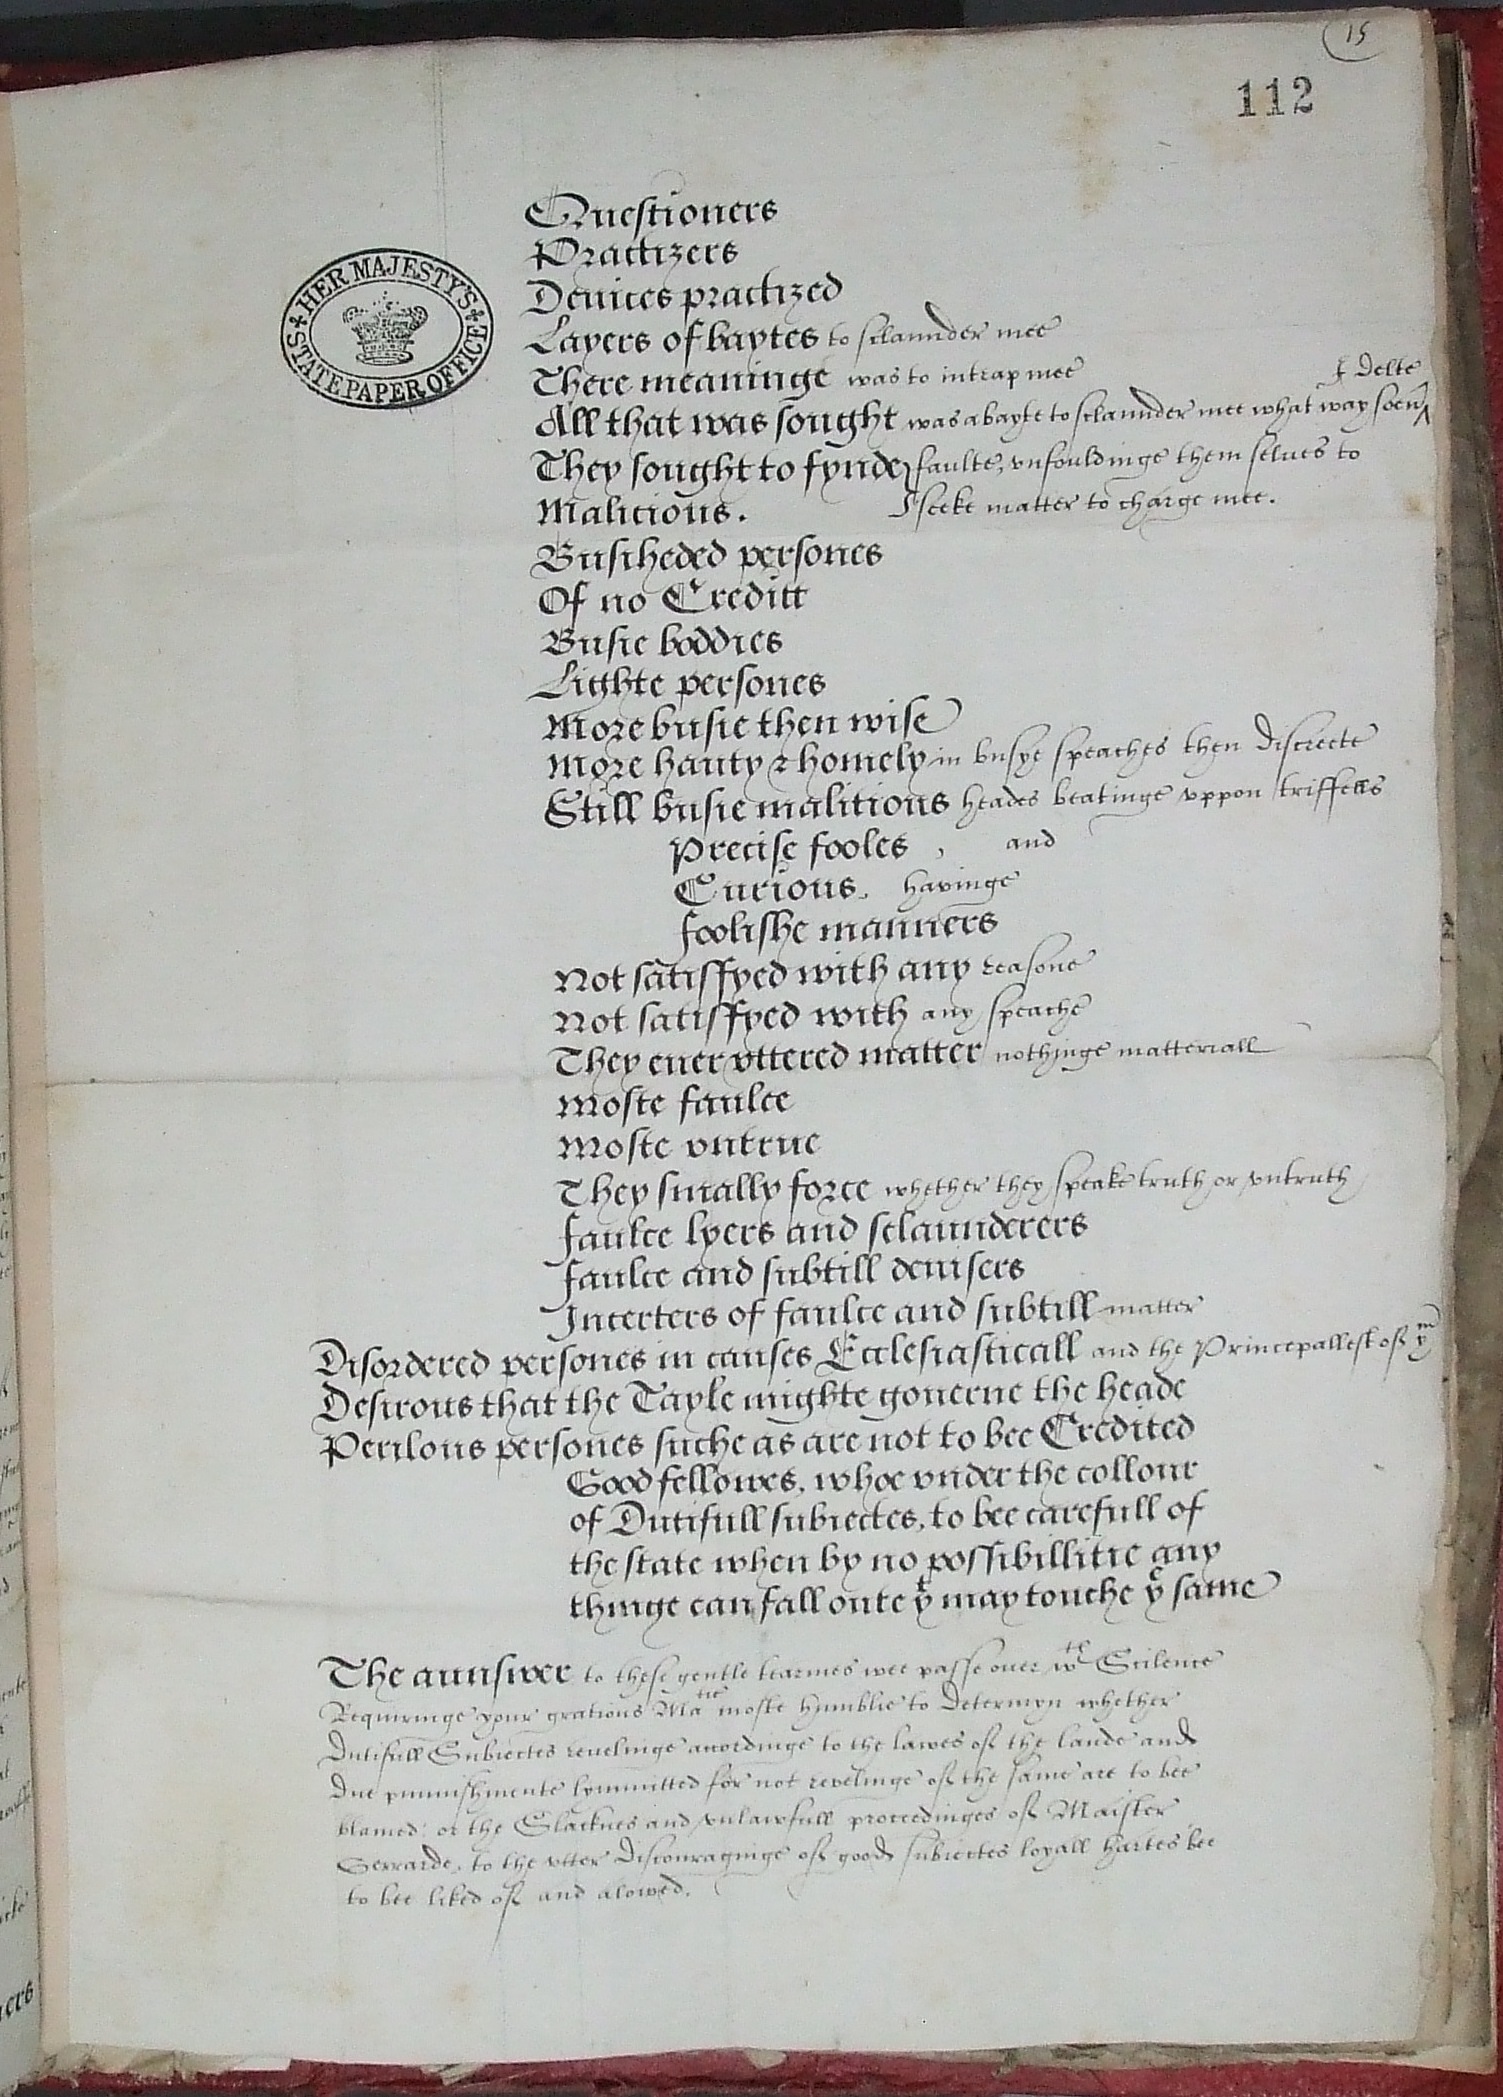 15
112
HER MAJESTY'S STATE PAPER OFFICE
Questioners
Practizers
Deuices practized
Layers of baytes to sclaunder mee
There meaninge was to intrap mee
I delte
All that was sought was a bayte to sclaunder mee what way soeu
They sought to fynde faulte, vnfouldinge them selues to
Malicious. seeke matter to charge mee.
Busiheded persones
Of no Creditt
Busie boddies
Lighte persones
More busie then wise
More hauty & homely in busye speaches then discreete
Still busie malitious heades beatinge vppon triffells
Precise fooles , and
Curious, havinge
foolishe manners
Not satisffyed with any reasone
Not satisffyed with any speache
They euer vttered matter nothinge matteriall
Moste faulce
Moste vntrue
They smally force whether they speake truth or vntruth
faulce lyers and sclaunderers
faulce and subtill deuisers
Incerters of faulce and subtill matter
Disordered persones in causes Ecclesiasticall and the Princepallest of ym
Desirous that the Tayle mighte gouerne the heade
Perilous persones suche as are not to bee Credited
Good fellowes, whoe vnder the collour
of Dutifull subiectes, to bee carefull of
the state when by no possibillitie any
thinge can fall oute yt may touche ye same
The aunswer to these gentle tearmes wee passe ouer wth Scilence
Requiringe your gratious Matie moste humblie to determyn whether
dutifull Subiectes reuelinge acordinge to the lawes of the lande and
due punnishmente lymmitted for not revelinge of the same are to bee
blamed: or the Slacknes and vnlawfull proceedinges of Maister
Gerrarde, to the vtter discouraginge of good subiectes loyall hartes bee
to bee liked of and alowed.